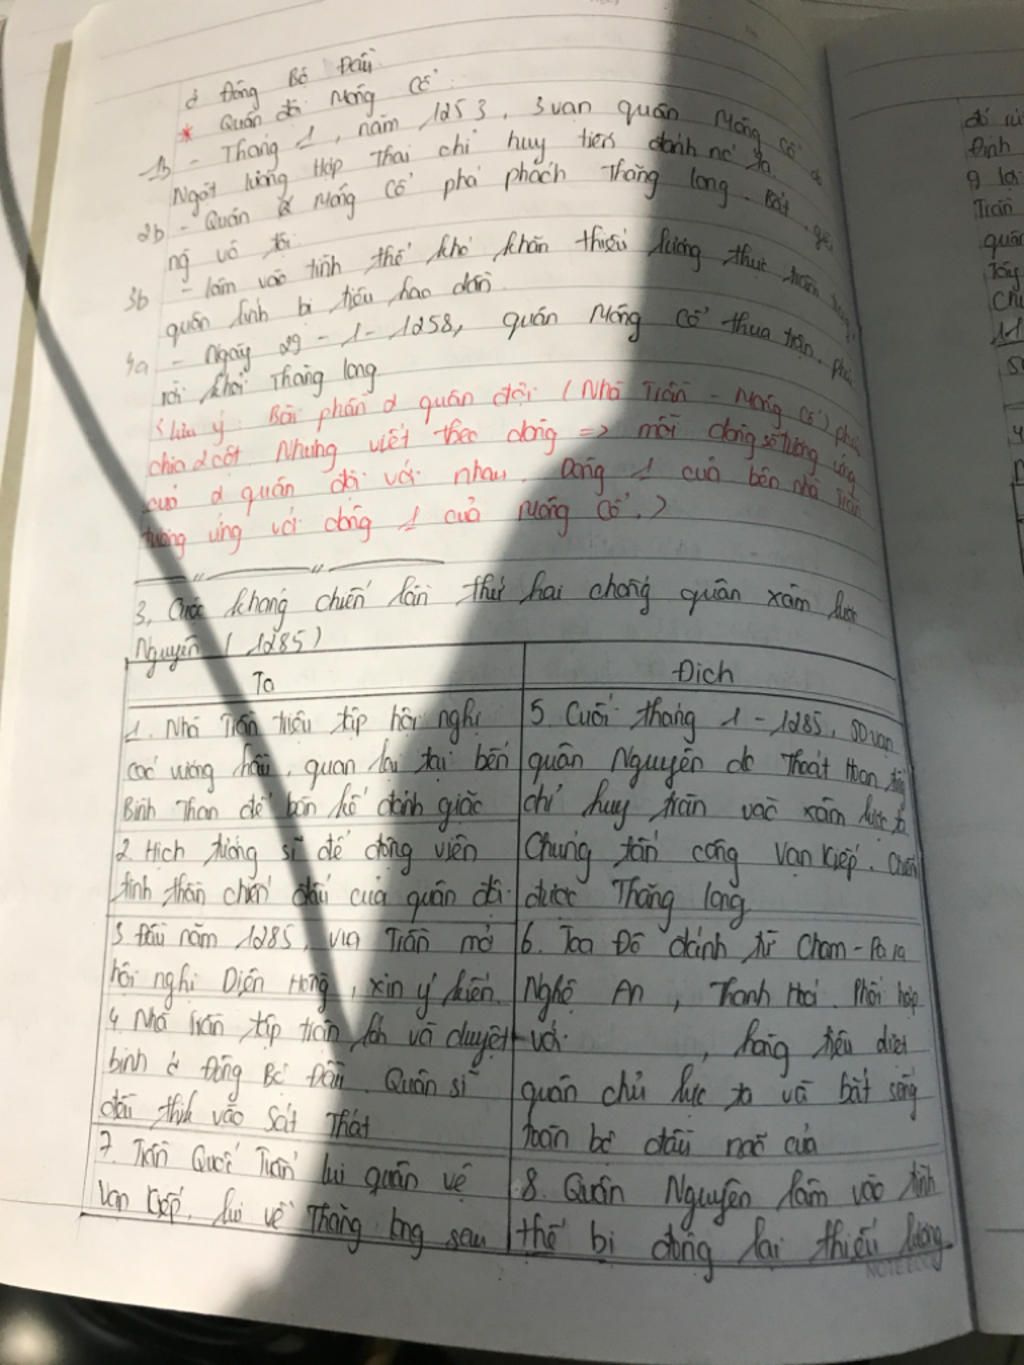 ở Đông Bộ Đầu
* Quân đội Mông Cổ:
1b - Tháng 1, năm 1253, 3 vạn quân Mông Cổ do
Ngột lương Hợp Thai chỉ huy tiến đánh nc ta.
2b - Quân Mông Cổ phá phách Thăng long.
3b - lâm vào tình thế khó khăn thiếu lương thực
quân lính bị tiêu hao dần
4a - Ngày 29-1-1258, quân Mông Cổ thua trận, phải
rời khỏi Thăng long
(lưu ý: Bài phần 2 quân đội (Nhà Trần - Mông Cổ) phải
chia 2 cột. Nhưng viết theo dòng => mỗi dòng sẽ tương ứng
của 2 quân đội với nhau. Dòng 1 của bên nhà Trần
tương ứng với dòng 1 của Mông Cổ.)
3, Cuộc kháng chiến lần thứ hai chống quân xâm lược
Nguyên (1285)
Ta
Địch
1. Nhà Trần triệu tập hội nghị
các vương hầu, quan lại tại bến
Bình Than để bàn kế đánh giặc
2. Hịch tướng sĩ để động viên
tinh thần chiến đấu của quân đội
3. Đầu năm 1285, vua Trần mở
hội nghị Diên Hồng, xin ý kiến
4. Nhà Trần tập trận lớn và duyệt
binh ở Đông Bộ Đầu. Quân sĩ
đều thích vào Sát Thát
7. Trần Quốc Tuấn lui quân về
Vạn Kiếp, lui về Thăng long sau
5. Cuối tháng 1-1285, 50 vạn
quân Nguyên do Thoát Hoan
chỉ huy tràn vào xâm lược ta
Chúng tấn công Vạn Kiếp. Chiếm
được Thăng long
6. Toa Đô đánh từ Cham-Pa ra
Nghệ An, Thanh Hoá. Phối hợp
với , hòng tiêu diệt
quân chủ lực ta và bắt sống
toàn bộ đầu não của
8. Quân Nguyên lâm vào tình
thế bị động lại thiếu lương
NOTEBOOK